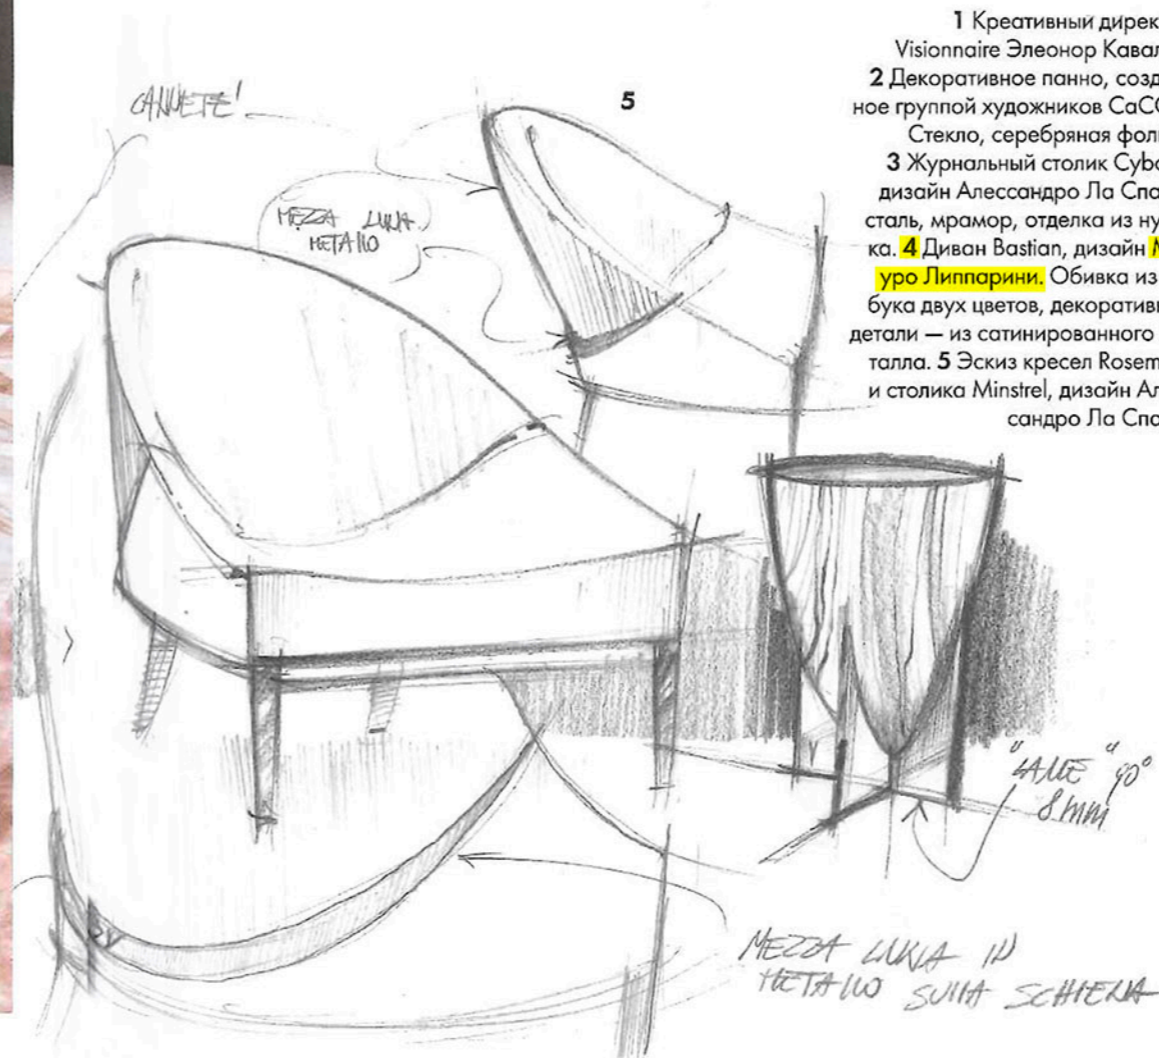 1 Креативный дирек
Visionnaire Элеонор Кавал
2 Декоративное панно, созд
ное группой художников CaCO
Стекло, серебряная фол
3 Журнальный столик Cybo
дизайн Алессандро Ла Спа
сталь, мрамор, отделка из ну
ка. 4 Диван Bastian, дизайн М
уро Липпарини. Обивка из
бука двух цветов, декоратив
детали — из сатинированного
талла. 5 Эскиз кресел Rosem
и столика Minstrel, дизайн Ал
сандро Ла Спа
5
CANNETE'
MEZZA LUNA
METALLO
"LAME" 90°
8 mm
MEZZA LUNA IN
METALLO SULLA SCHIENA